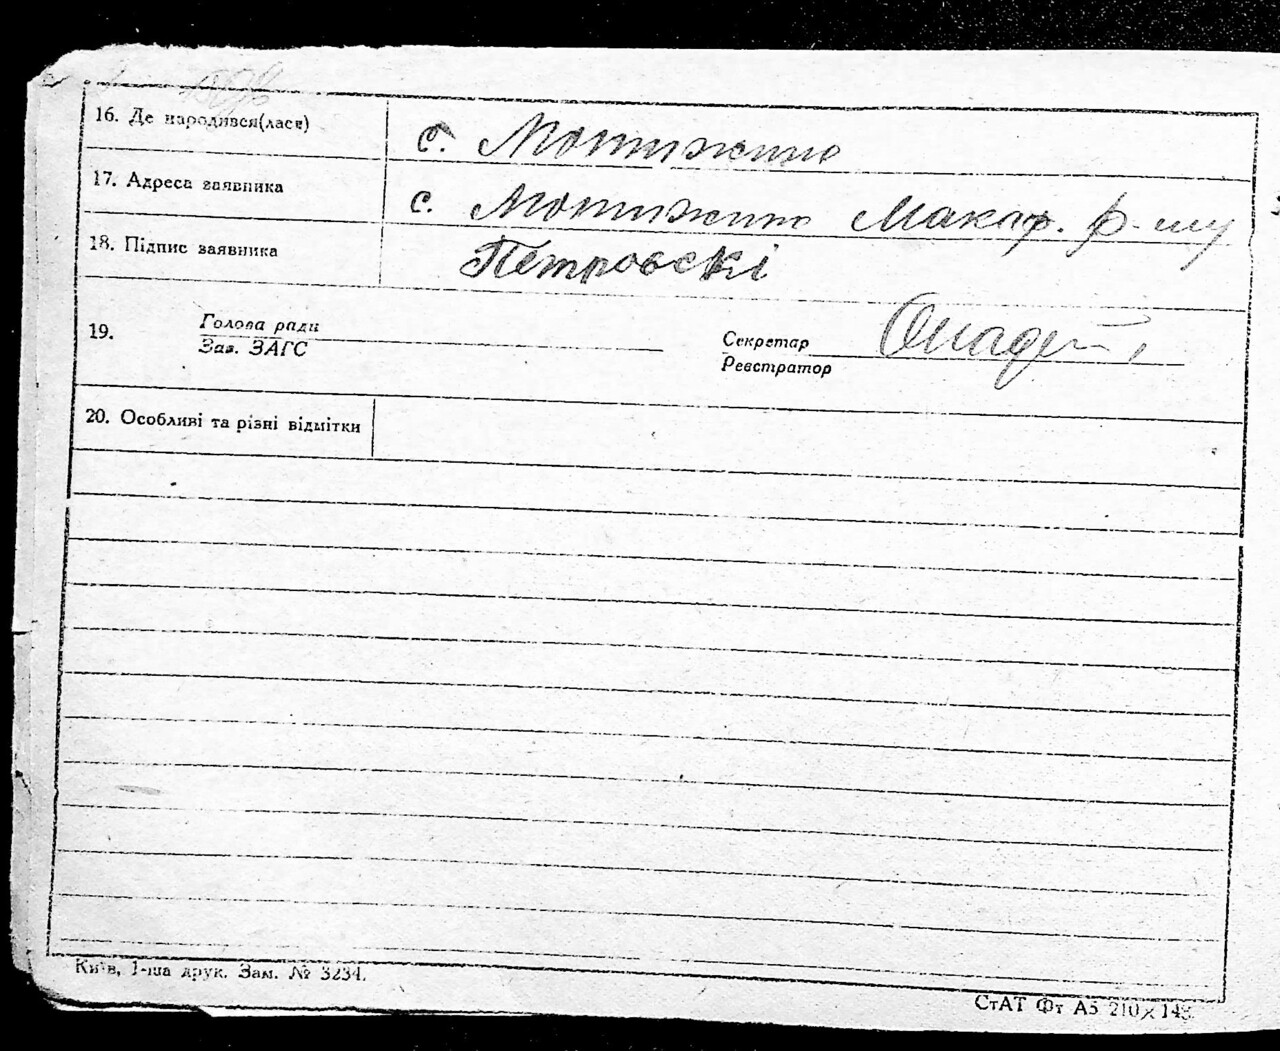 16. Де народився(лася) с. Мотижино
17. Адреса заявника с. Мотижино Макар. р-ну
18. Підпис заявника Петровскі
19. Голова ради
Зав. ЗАГС
Секретар
Реєстратор
20. Особливі та різні відмітки
Київ, 1-ша друк. Зам. № 3234.
СтАТ Фт А5 210×148